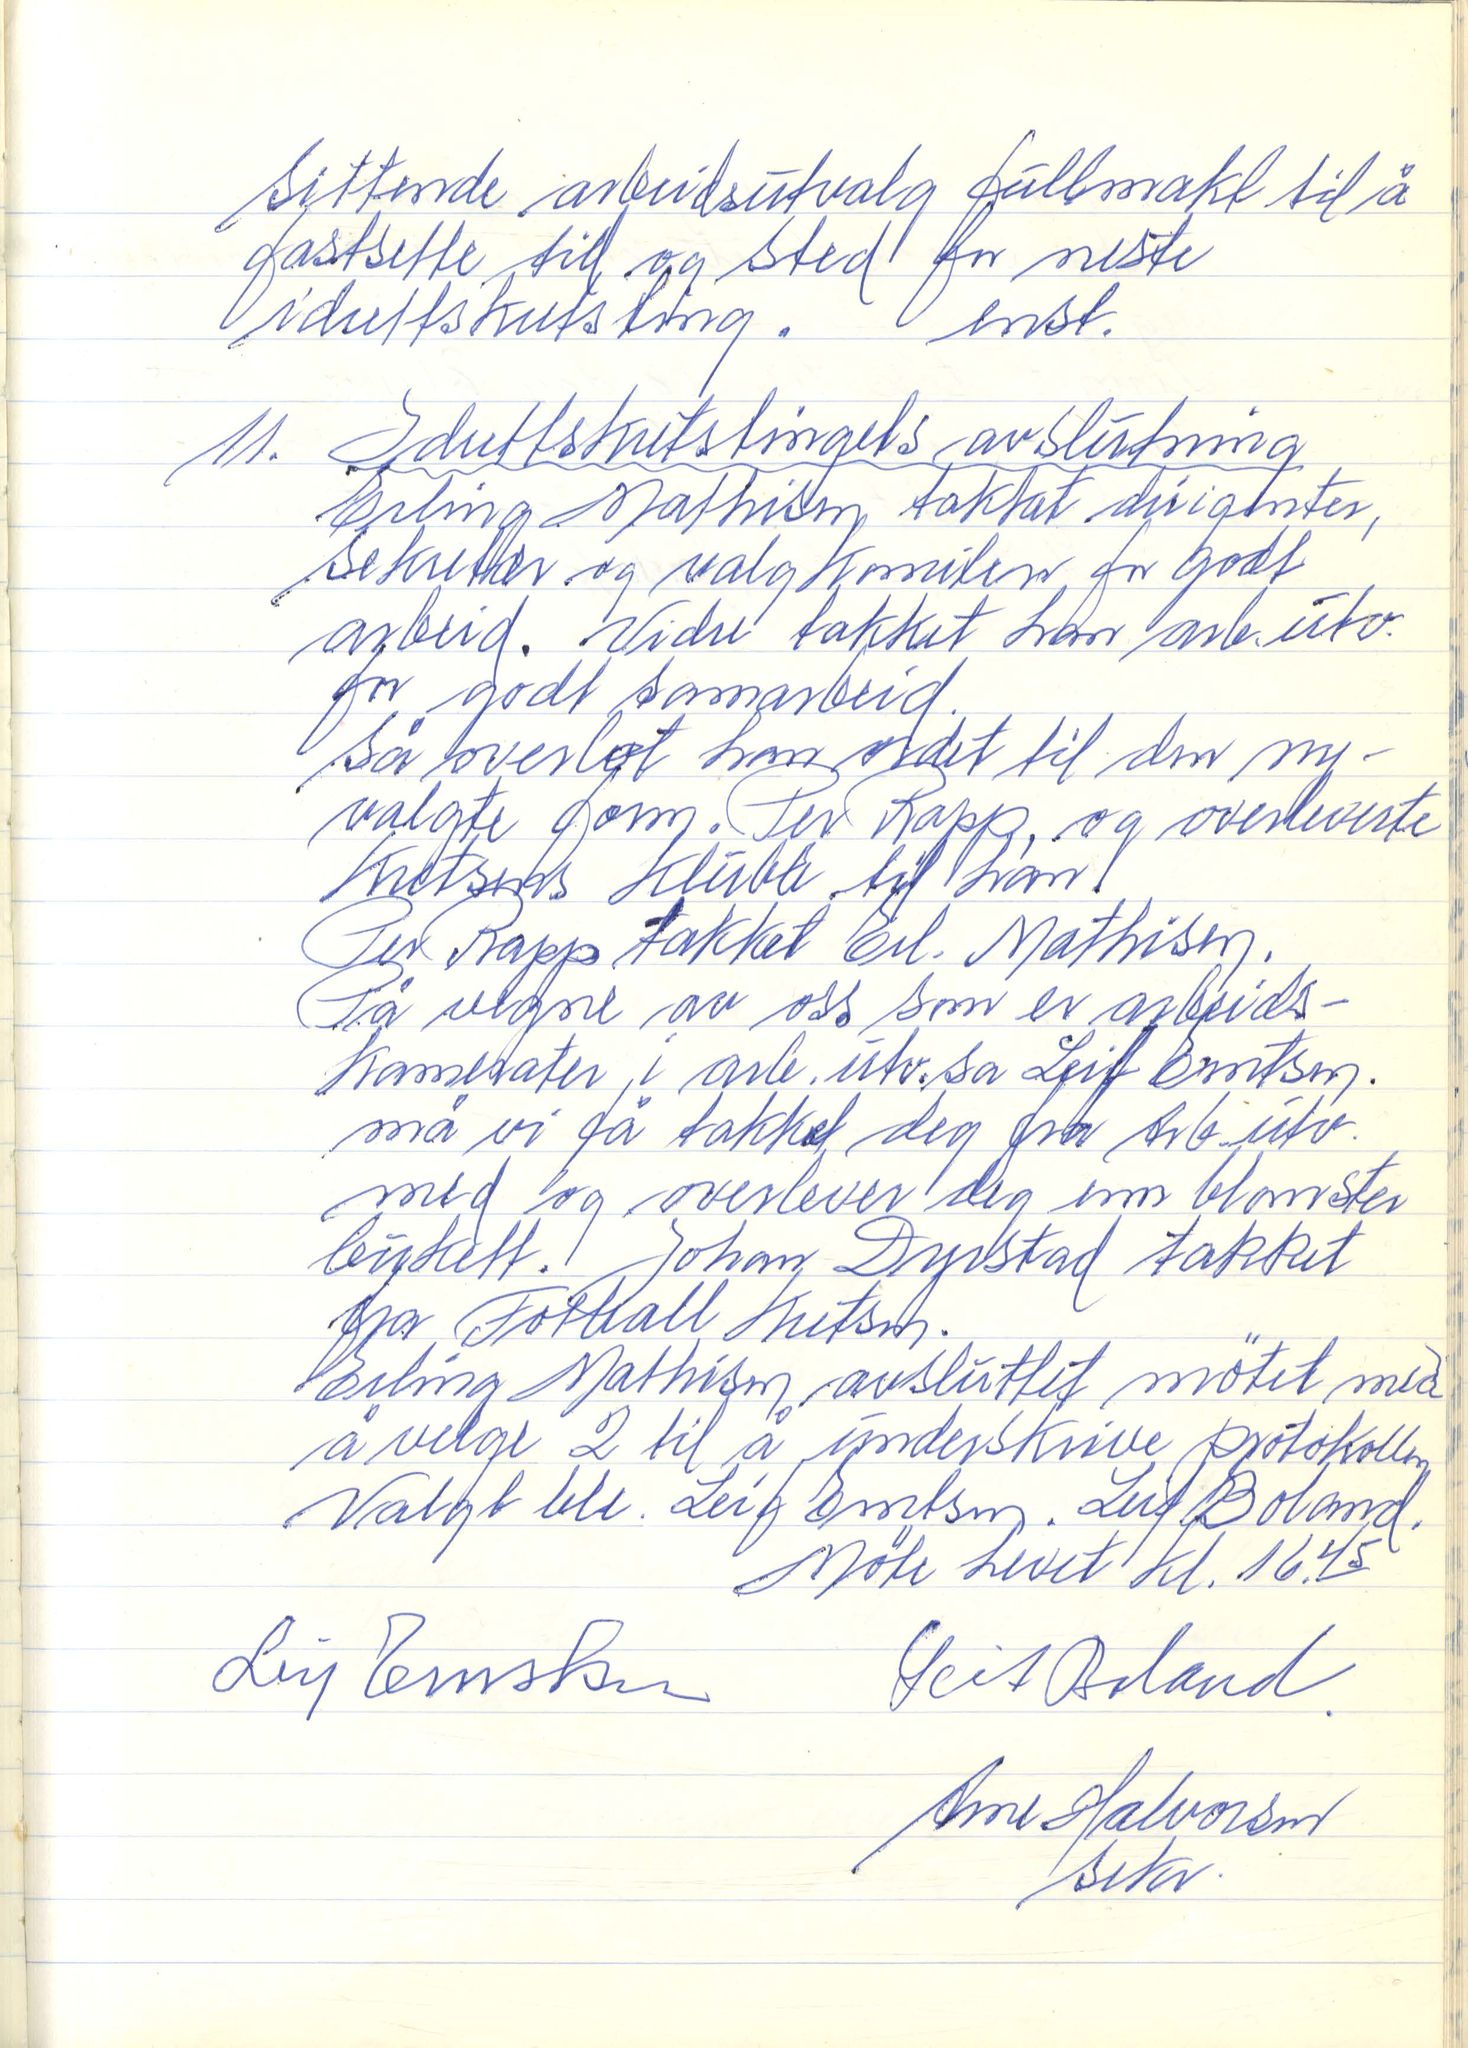 sittende arbeidsutvalg fullmakt til å
fastsette tid og sted for neste
idrettskretsting. enst.
11. Idrettskretstingets avslutning
Erling Mathisen takket dirigenter,
sekretær og valgkomiteen for godt
arbeid. Vidre takket han arb. utv.
for godt samarbeid.
Så overlot han ordet til den ny-
valgte form. Per Rapp, og overleverte
Kretsens klubb til han.
Per Rapp takket Erl. Mathisen.
På vegne av oss som er arbeids-
kamerater i arb. utv. sa Leif Erntsen.
må vi få takket deg fra Arb. utv.
med og overlever deg enn blomster
bukett. Johan Dyrstad takket
fra Fotball kretsen.
Erling Mathisen avsluttet mötet med
å velge 2 til å underskrive protokollen
Valgt ble. Leif Erntsen. Leif Boland.
Möte hevet kl. 16.45
Leif Erntsen Leif Boland.
Arne Halvorsen
sekr.